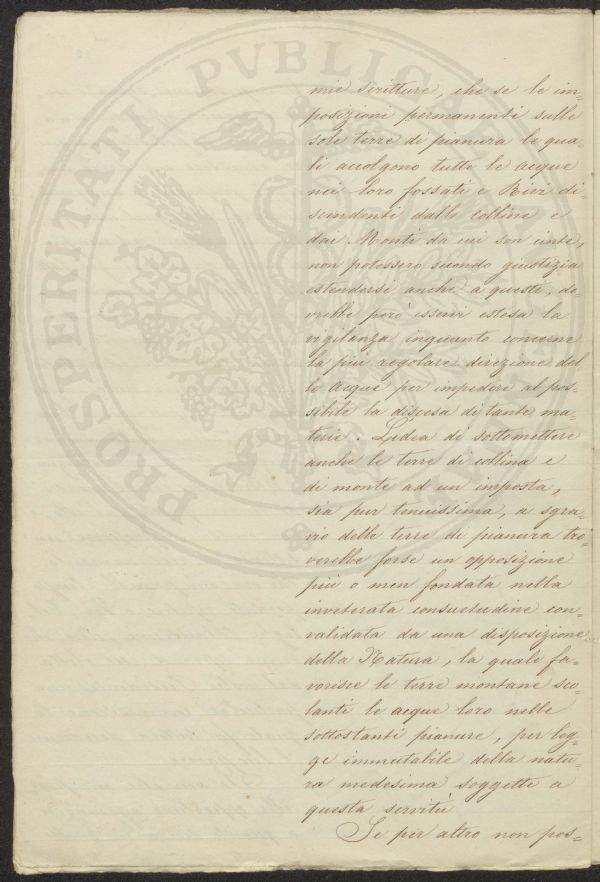 mie scritture, che se le im=
posizioni permanenti sulle
sole terre di pianura le qua=
li accolgono tutte le acque
nei loro fossati e Rivi di=
scendenti dalle colline e
dai Monti da cui son cinte,
non potessero secondo giustizia
estendersi anche a questi, do=
vrebbe però esservi estesa la
vigilanza inquanto concerne
la più regolare direzione del
le Acque per impedire al pos=
sibile la discesa di tante ma=
terie. L'idea di sottomettere
anche le terre di collina e
di monte ad un imposta,
sia pur tenuissima, a sgra=
vio delle terre di pianura tro=
verebbe forse un opposizione
più o men fondata nella
inveterata consuetudine con=
validata da una disposizione
della Natura, la quale fa=
vorisce le terre montane sco=
lanti le acque loro nelle
sottostanti pianure, per leg=
ge immutabile della natu=
ra medesima soggette a
questa servitù
Se per altro non pos=
PROSPERITATI PVBLICAE